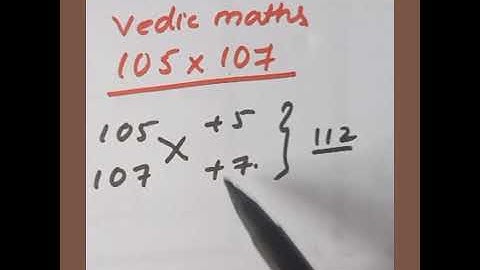 Vedic maths
105 x 107
105 x +5 } 112
107 +7.